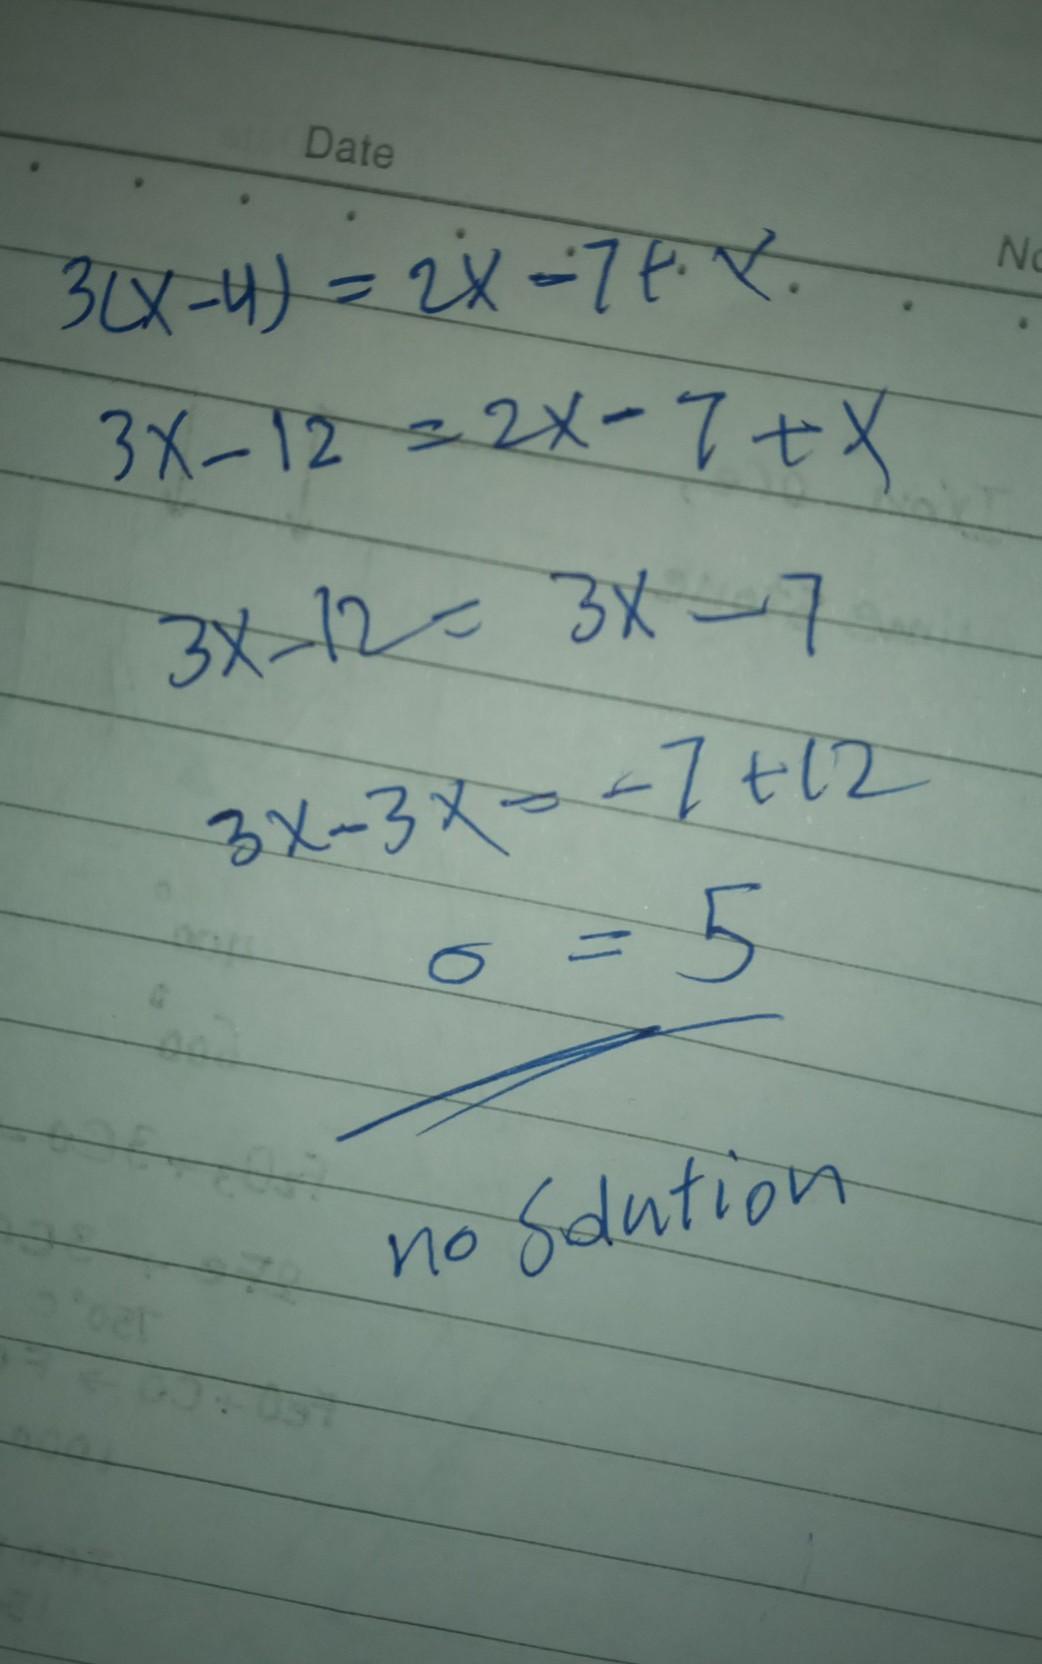 Date
No
3(x-4) = 2x - 7 + x
3x - 12 = 2x - 7 + x
3x - 12 = 3x - 7
3x - 3x = -7 + 12
0 = 5
no solution